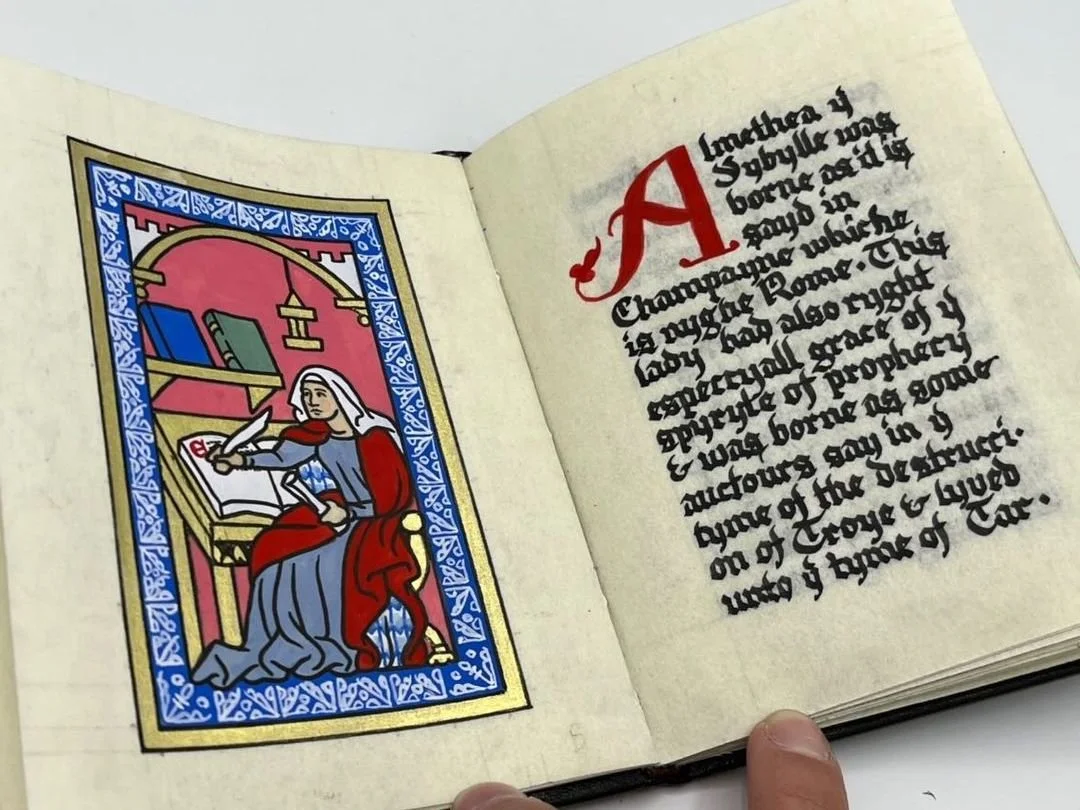 Almethea ẏ
Sybylle was
borne as it is
sayd in
Champayne whiche
is nyghe Rome. This
lady had also ryght
especcyall grace of ẏ
spyryte of prophecy
& was borne as some
auctours say in ẏ
tyme of the destructi.
on of Troye & lyved
unto ẏ tyme of Tar.